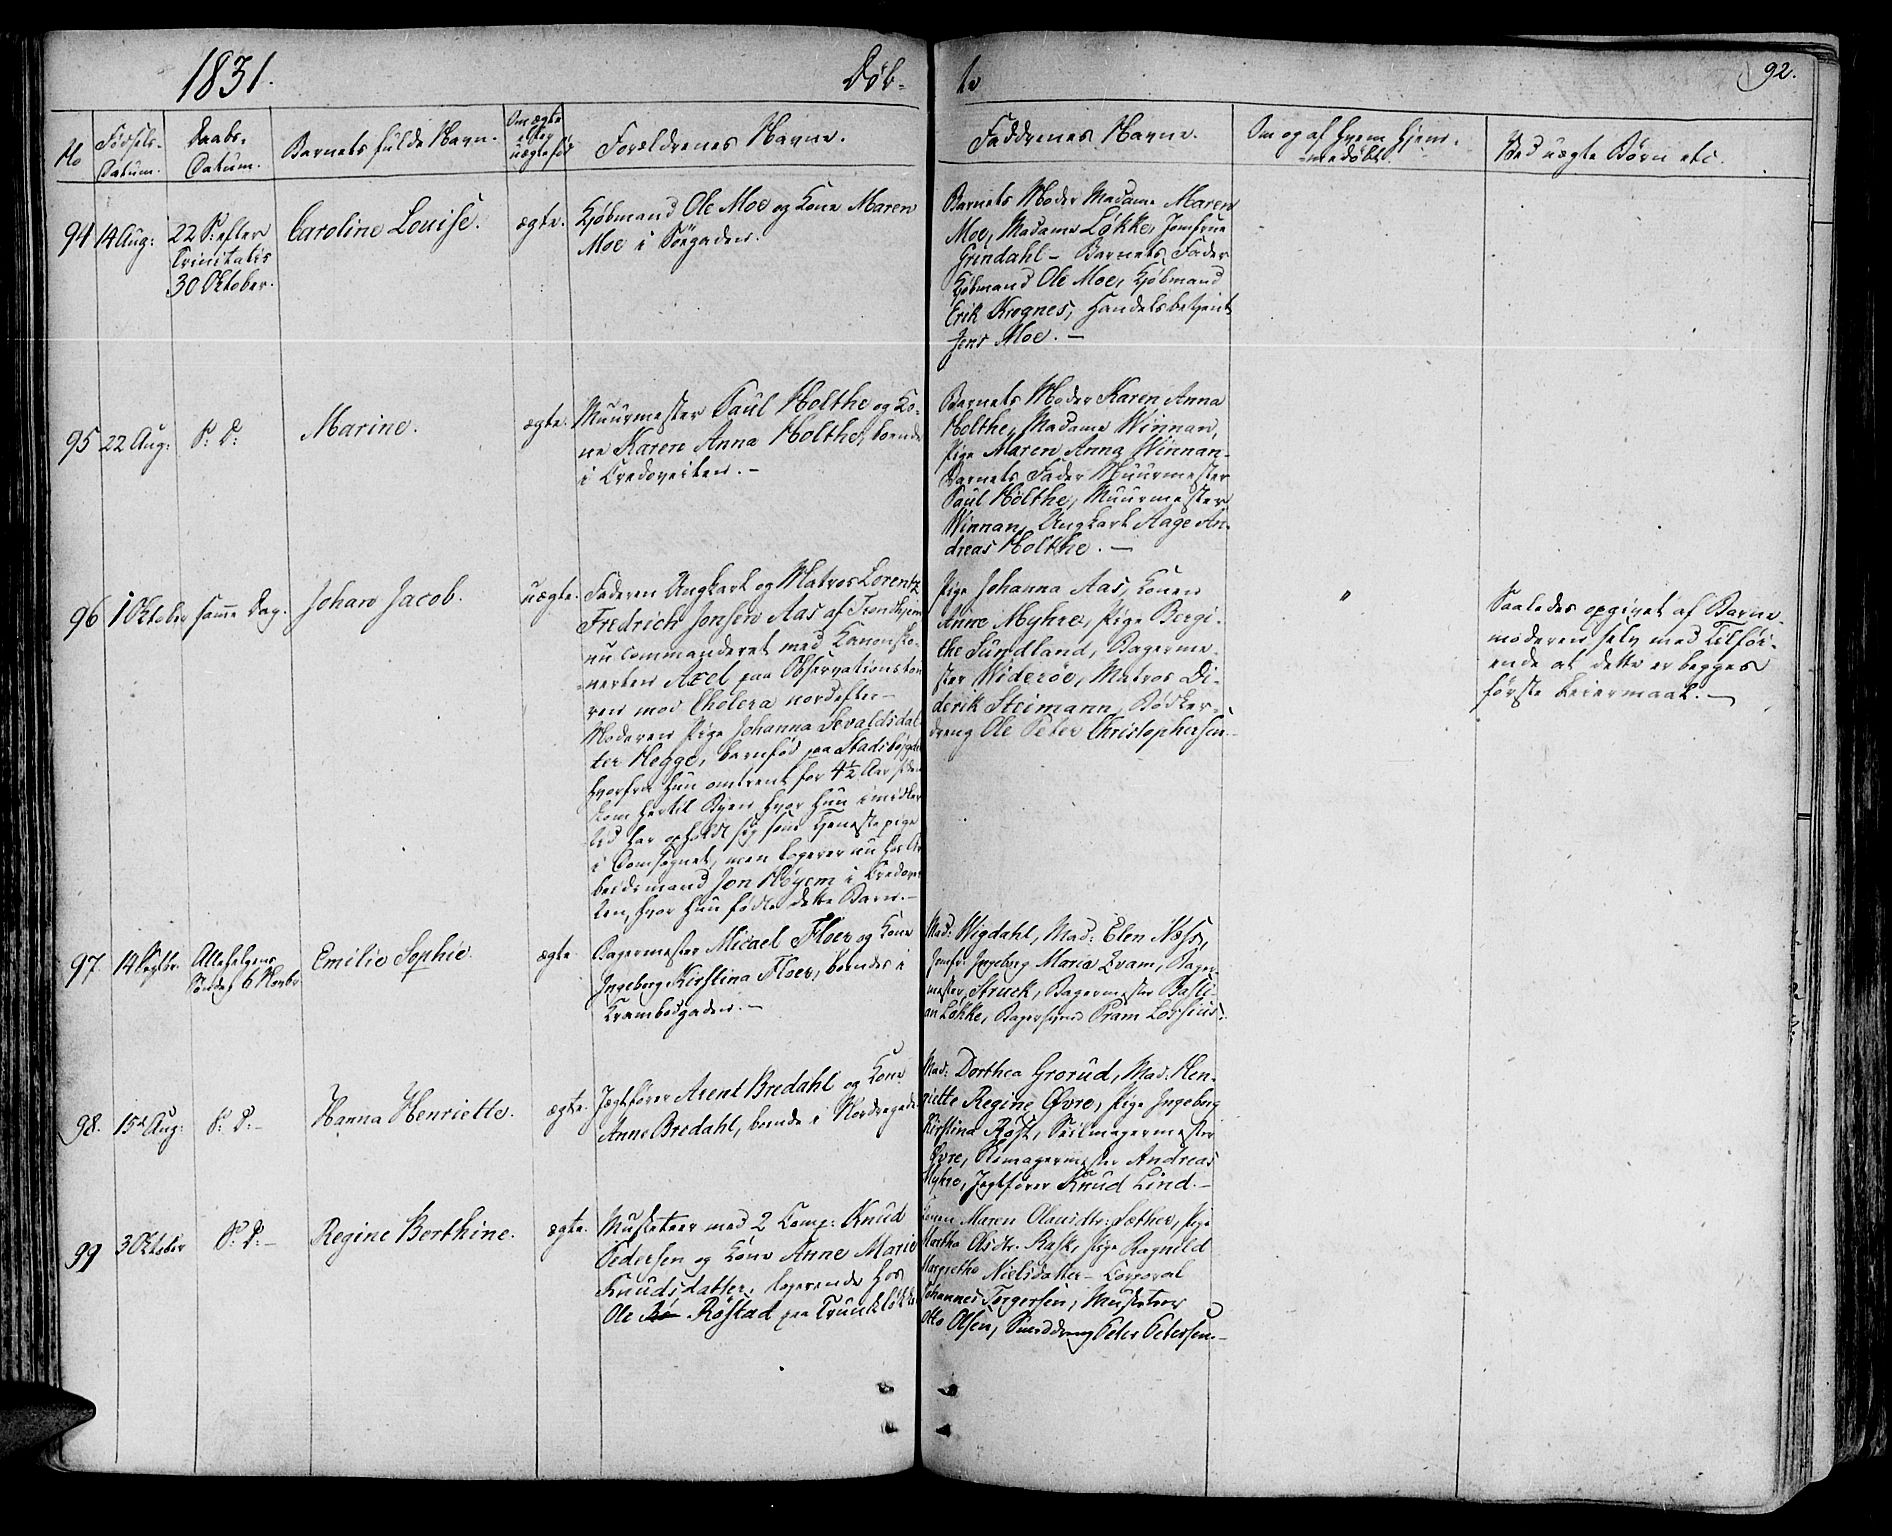 1831.
Døb-
te
92.
No
Fødsels-
Datum.
Daabs-
Datum.
Barnets fulde Navn.
Om ægte
eller
uægte fød
Forældrenes Navne.
Faddrenes Navne.
Om og af hvem hjem-
medøbt.
Ved uægte Børn etc.
94
14 Aug:
22 S: efter
Trinitatis
30 Oktober.
Caroline Louise.
ægte.
Kjøbmand Ole Moe og Kone Maren
Moe i Søegaden.
Barnets Moder Madame Maren
Moe, Madame Løkke, Jomfrue
Grindahl - Barnets Fader
Kjøbmand Ole Moe, Kjøbmand
Erik Krognes, Handelsbetjent
Jens Moe. -
95
22 Aug:
S: D:
Marine.
ægte.
Muurmester Paul Holthe og Ko-
ne Karen Anna Holthe, boende
i Credoveiten. -
Barnets Moder Karen Anna
Holthe, Madame Winnan,
Pige Maren Anna Winnan -
Barnets Fader Muurmester
Paul Holthe, Muurmester
Winnan, Ungkarl Aage An-
dreas Holthe. -
96
1 Oktober
samme Dag.
Johan Jacob.
uægte.
Faderen Ungkarl og Matros Lorentz
Fredrich Jonsen Aas af Trondhjem
nu commanderet med Kanonsko-
nerten Axel paa Observationstou-
ren mod Cholera nordefter -
Moderen Pige Johanna Sevaldsdat-
ter Hegge, barnfød paa Stadsbøygden
hvorfra hun omtrent for 4½ Aar siden
kom hertil Byen hvor hun imidler
tid har opholdt sig som Tjenestepige
i Domsognet, men logerer nu hos Ar
beidsmand Jon Høyem i Credovei
ten, hvor hun fødte dette Barn. -
Pige Johanna Aas, Konen
Anne Myhre, Pige Bergi-
the Sundland, Bagerme-
ster Widerøe, Matros Di-
derik Steimann, Bødker-
dreng Ole Peter Christophersen -
"
Saaledes opgivet af Barne-
moderen selv med Tilføi-
ende at dette er begges
første Leiermaal. -
97.
14 Septbr.
Allehelgens
Søndag 6 Novbr
Emilie Sophie.
ægte
Bagermester Micael Floer og Kone
Ingeborg Kirstina Floer, boendes i
Krambodgaden. -
Mad: Wigdahl, Mad: Elen Næss,
Jomfr: Ingeborg Maria Evam, Bager-
mester Struck, Bagermester Basti-
an Løkke, Bagersvend Pram Lossius.
98.
15de Aug:
S: D: -
Hanna Henriette.
ægte.
Jægtfører Arent Bredahl og Kone
Anne Bredahl, boende i Nordregade
Mad: Dorthea Grorud, Mad: Hen-
riette Regine Øvre, Pige Ingeborg
Kirstina Røst, Seilmagermester
Øvre, Remagermester Andreas
Myhre, Jægtfører Knud Lind. -
99
3 Oktober
S: D: -
Regine Berthine.
ægte.
Musketeer med 2 Comp: Knud
Pedersen og Kone Anne Marie
Knudsdatter, logerende hos
Ole Røstad paa Trunkløkken
Konen Maren Olausdtr: Sæther, Pige
Martha Olsdtr. Rask, Pige Ragnild
Margrethe Nielsdatter - Corporal
Johannes Torgersen, Musketeer
Otto Olsen, Smeddreng Peter Petersen. -